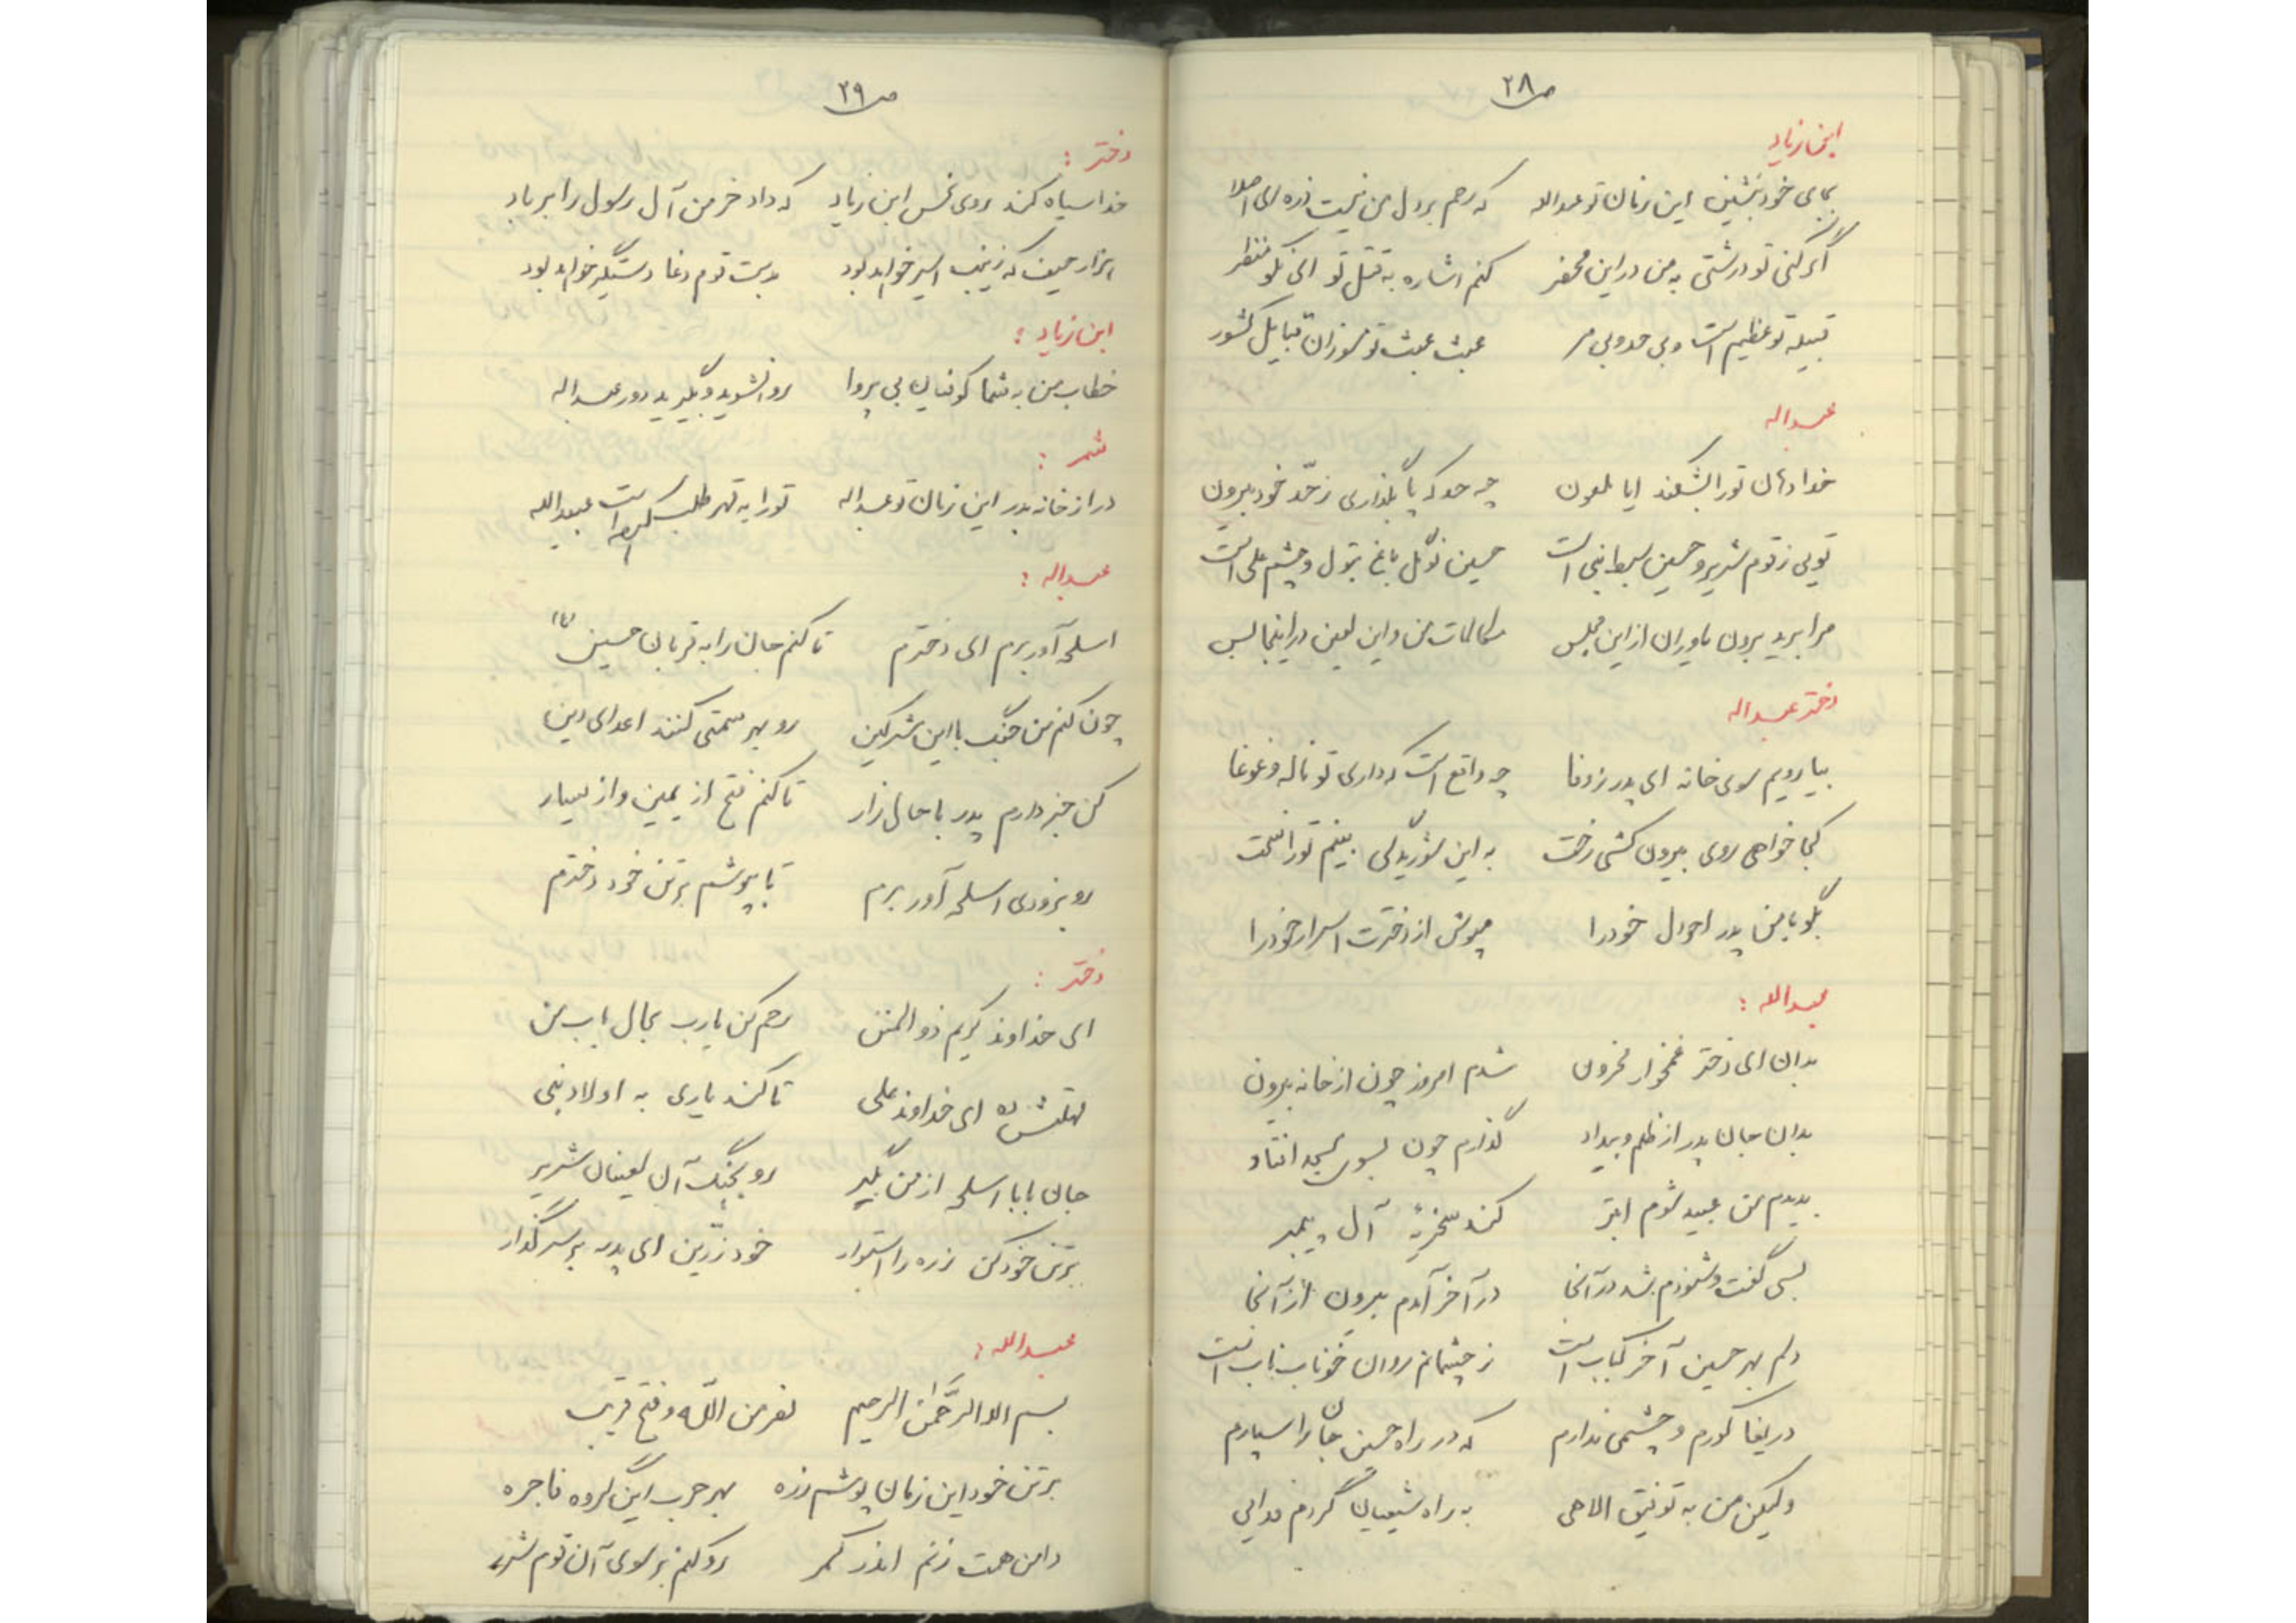 ص ۲۸
ابن زیاد
بجای خود بنشین این زمان تو عبداله که رحم بر دل من نیست ذره ای اصلا
اگر کنی تو درشتی به من در این محضر کنم اشاره به قتل تو ای نکو منظر
قبیله تو عظیم است و بی حد و بی مر عبث عبث تو مشوران قبایل کشور
عبداله
خدا دهان تو را بشکند ایا ملعون چه حد که پا بگذاری ز حدّ خود بیرون
تویی ز قوم شریر و حسین سبط نبی است حسین نوگل باغ بتول و چشم علی است
مرا برید برون یاوران از این مجلس مکالمات من و این لعین در اینجا بس
دختر عبداله
بیا رویم سوی خانه ای پدر ز وفا چه واقع است که داری تو ناله و غوغا
کجا خواهی روی بیرون کشی رخت به این شوریدگی بینم تو را سخت
بگو با من پدر احوال خود را مپوش از دخترت اسرار خود را
عبدالله :
بدان ای دختر غمخوار محزون شدم امروز چون از خانه بیرون
بدان جان پدر از ظلم و بیداد گذارم چون بسوی مسجد افتاد
بدیدم من عبید شوم ابتر کند سخریهٔ آل پیمبر
بسی گفت و شنودم شد در آنجا در آخر آمدم بیرون از آنجا
دلم بهر حسین آخر کباب است ز چشمانم روان خوناب ناب است
دریغا کورم و چشمی ندارم که در راه حسین جان را سپارم
ولیکن من به توفیق الاهی به راه شیعیان گردم فدایی
ص ۲۹
دختر :
خدا سیاه کند روی نحس ابن زیاد که داد خرمن آل رسول را بر باد
هزار حیف که زینب اسیر خواهد بود بدست قوم دغا دستگیر خواهد بود
ابن زیاد :
خطاب من به شما کوفیان بی پروا روان شوید و بگیرید دور عبداله
شمر :
درا ز خانه بدر این زمان تو عبداله تو را به قهر طلب کرده است عبیدالله
عبداله :
اسلحه آور برم ای دخترم تا کنم جان را به قربان حسین (ع)
چون کنم من جنگ با این مشرکین رو بهر سمتی کنند اعدای دین
کن خبردارم پدر با حال زار تا کنم فتح از یمین و از یسار
رو بزودی اسلحه آور برم تا بپوشم بر تن خود دخترم
دختر :
ای خداوند کریم ذوالمنن رحم کن یارب بحال باب من
مهلتش ده ای خداوند علی تا کند یاری به اولاد نبی
جان بابا اسلحه از من بگیر رو بجنگ آن لعینان شریر
بر تن خود کن زره را استوار خود زرّین ای پدر بر سر گذار
عبدالله :
بسم الله الرَّحمٰن الرحیم نصر من اللّه و فتح قریب
بر تن خود این زمان پوشم زره بهر حرب این گروه فاجره
دامن همت زنم اندر کمر رو کنم بر سوی آن قوم شرر